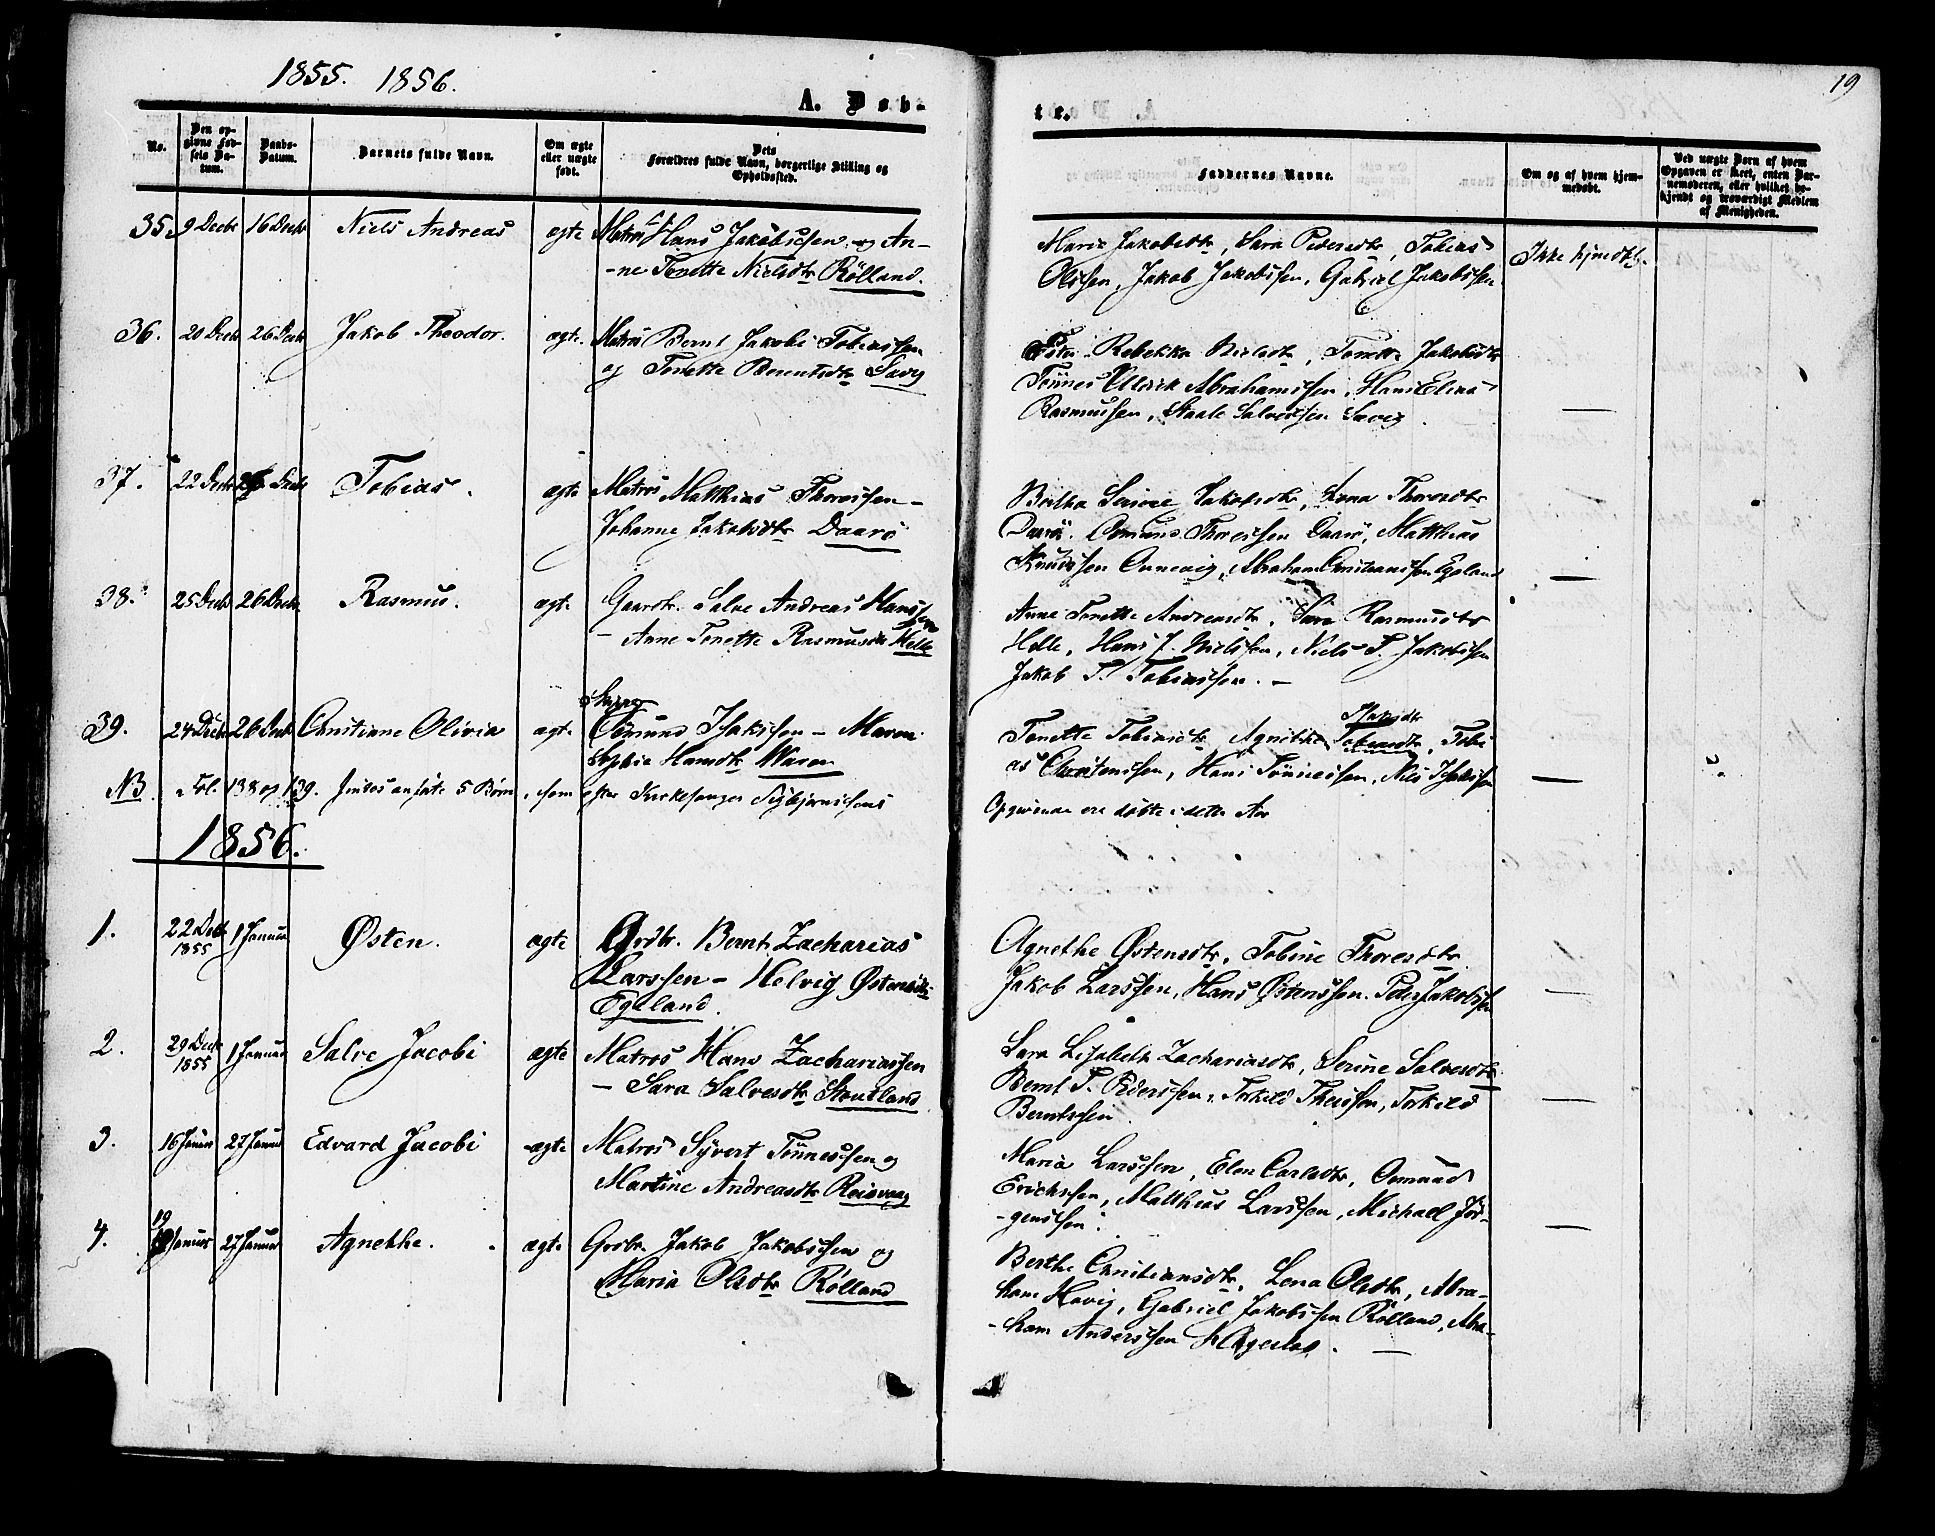 1855. 1856.
19
A. Døb-
te.
No.
Den op-
givne Fød-
sels Da-
tum.
Daabs-
Datum.
Barnets fulde Navn.
Om ægte
eller uægte
født.
Dets
Forældres fulde Navn, borgerlige Stilling og
Opholdssted.
Faddernes Navne.
Om og af hvem hjem-
medøbt.
Ved uægte Barn af hvem
Opgaven er skeet, enten Bar-
nemoderen, eller hvilket be-
kjendt og troværdigt Medlem
af Menigheden.
35. 9 Decbr 16 Decbr Niels Andreas ægte Matros Hans Jakobssen og An-
-ne Tonette Nielsdtr Rölland.
Maria Jakobsdtr, Sara Pedersdtr, Tobias
Olssen, Jakob Jakobssen, Gabriel Jakobssen
Ikke hjmdbt.
36. 20 Decbr 26 Decbr Jakob Theodor. ægte. Matros Bernt Jakobi Tobiassen
og Tonette Berentsdtr Savig
Rebekka Nielsdtr, Tonette Jakobsdtr
Tönnes Ullrick Abrahamssen, Hans Elias
Rasmussen, Staale Salvessen Savig.
—
37. 22 Decbr 26 Decbr Tobias. ægte Matros Matthias Thoressen —
Johanne Jakobsdtr Daarö
Bertha Serine Jakobsdtr, Lena Thoresdtr
Daarö. Osmund Thoressen Daarö, Matthias
Knudssen Onnevig, Abraham Christianssen Egeland
—
38. 25 Decbr 26 Decbr Rasmus. ægte. Gaardbr. Salve Andreas Hanssen
— Anne Tonette Rasmusdtr Helle
Anne Tonette Andreasdtr, Sara Rasmusdtr
Helle, Hans J. Nielssen, Niels T. Jakobssen
Jakob T. Tobiassen. —
39. 24 Decbr 26 Decbr Christiane Olivia ægte. Osmund Isakssen — Maren
Sophie Hansdtr Waren
Tonette Tobiasdtr, Agnethe Tobiasdtr, Tobi
Isaksdtr
as Christenssen, Hans Tönnessen, Nils Isakssen
—
NB. Fol. 138 og 139. findes anførte 5 Børn, som efter Kirkesanger Sigbjørnssens
Opgivende ere døbte i dette Aar
1856.
1. 22 Decbr 1855 1 Januar Østen. ægte Grdbr. Bernt Zacharias
Larssen — Helvig Østensdtr
Egeland.
Agnethe Østensdtr, Tobine Thoresdtr
Jakob Larssen, Hans Østenssen. Peder Jakobssen
—
2. 29 Decbr 1855 1 Januar Salve Jacobi ægte Matros Hans Zachariassen
— Sara Salvesdtr Stoutland
Sara Lisabeth Zachariasdtr, Serine Salvesdtr
Bernt T. Pederssen, Torkild Theissen, Torkild
Berntssen.
—
3. 16 Januar 27 Januar Edvard Jacobi ægte Matros Syvert Tönnessen og
Martine Andreasdtr Reisvaag
Maria Larssen, Elen Carlsdtr, Osmund
Erichssen, Matthias Larssen, Michael Jör-
-genssen.
—
4. 19 Januar 27 Januar Agnethe. ægte. Grdbr. Jakob Jakobssen og
Maria Olsdtr Rölland
Berthe Christiansdtr, Lena Olsdtr, Abra-
ham Havig, Gabriel Jakobssen Rölland, Abra-
-ham Anderssen Hagestad. —